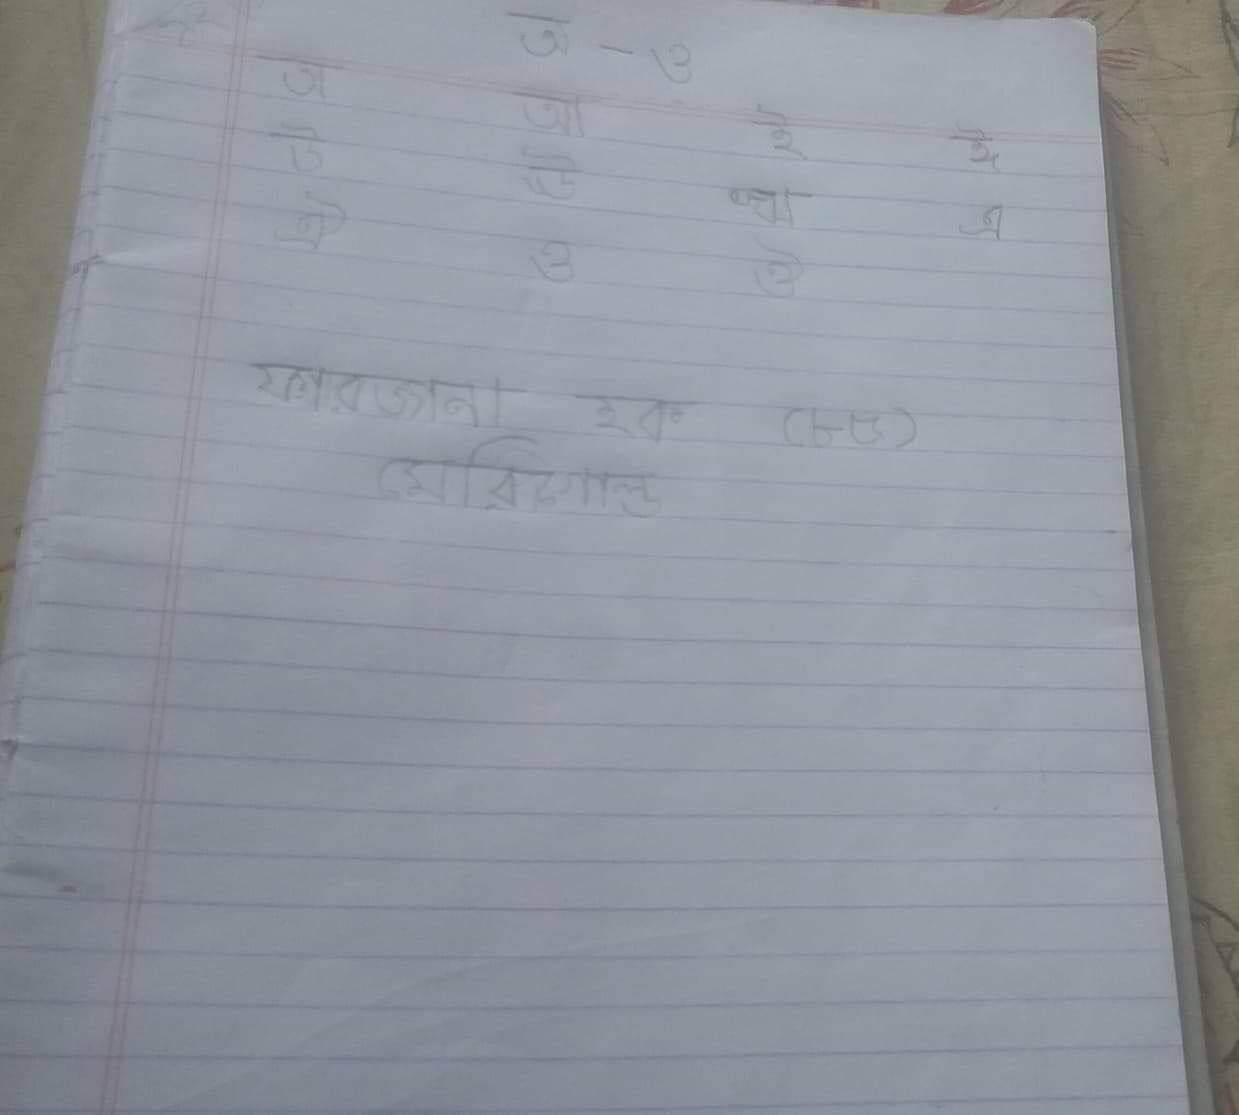 অ - ও
অ আ ই ঈ
উ ঊ ঋ এ
ঐ ও ঔ
ফারজানা হক (৮৬)
মেরিগোল্ড